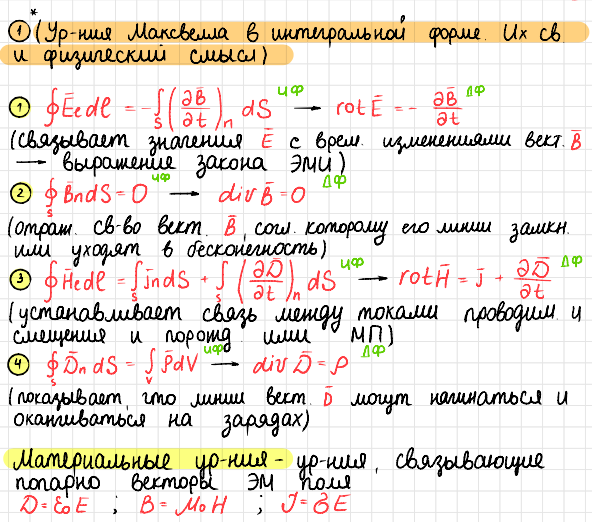 *
① (Ур-ния Максвелла в интегральной форме. Их св. и физический смысл)
① ∮Ēₑdl = -∫ₛ(∂B̄/∂t)ₙ dS ИФ → rotĒ = - ∂B̄/∂t ДФ
(связывает значения Ē с врем. изменениями вект. B̄
→ выражение закона ЭМИ)
② ∮ₛB̄ndS = 0 ИФ → divB̄ = 0 ДФ
(отраж. св-во вект. B̄, согл. которому его линии замкн.
или уходят в бесконечность)
③ ∮H̄edl = ∫ₛj̄ndS + ∫ₛ(∂D̄/∂t)ₙ dS ИФ → rotH̄ = j̄ + ∂D̄/∂t ДФ
(устанавливает связь между токами проводим. и
смещения и порожд. ими МП)
④ ∮ₛD̄ₙdS = ∫ᵥρ̄dV ИФ → divD̄ = ρ ДФ
(показывает, что линии вект. D̄ могут начинаться и
оканчиваться на зарядах)
Материальные ур-ния - ур-ния, связывающие
попарно векторы ЭМ поля
D = ε₀E ; B = μ₀H ; J = σE